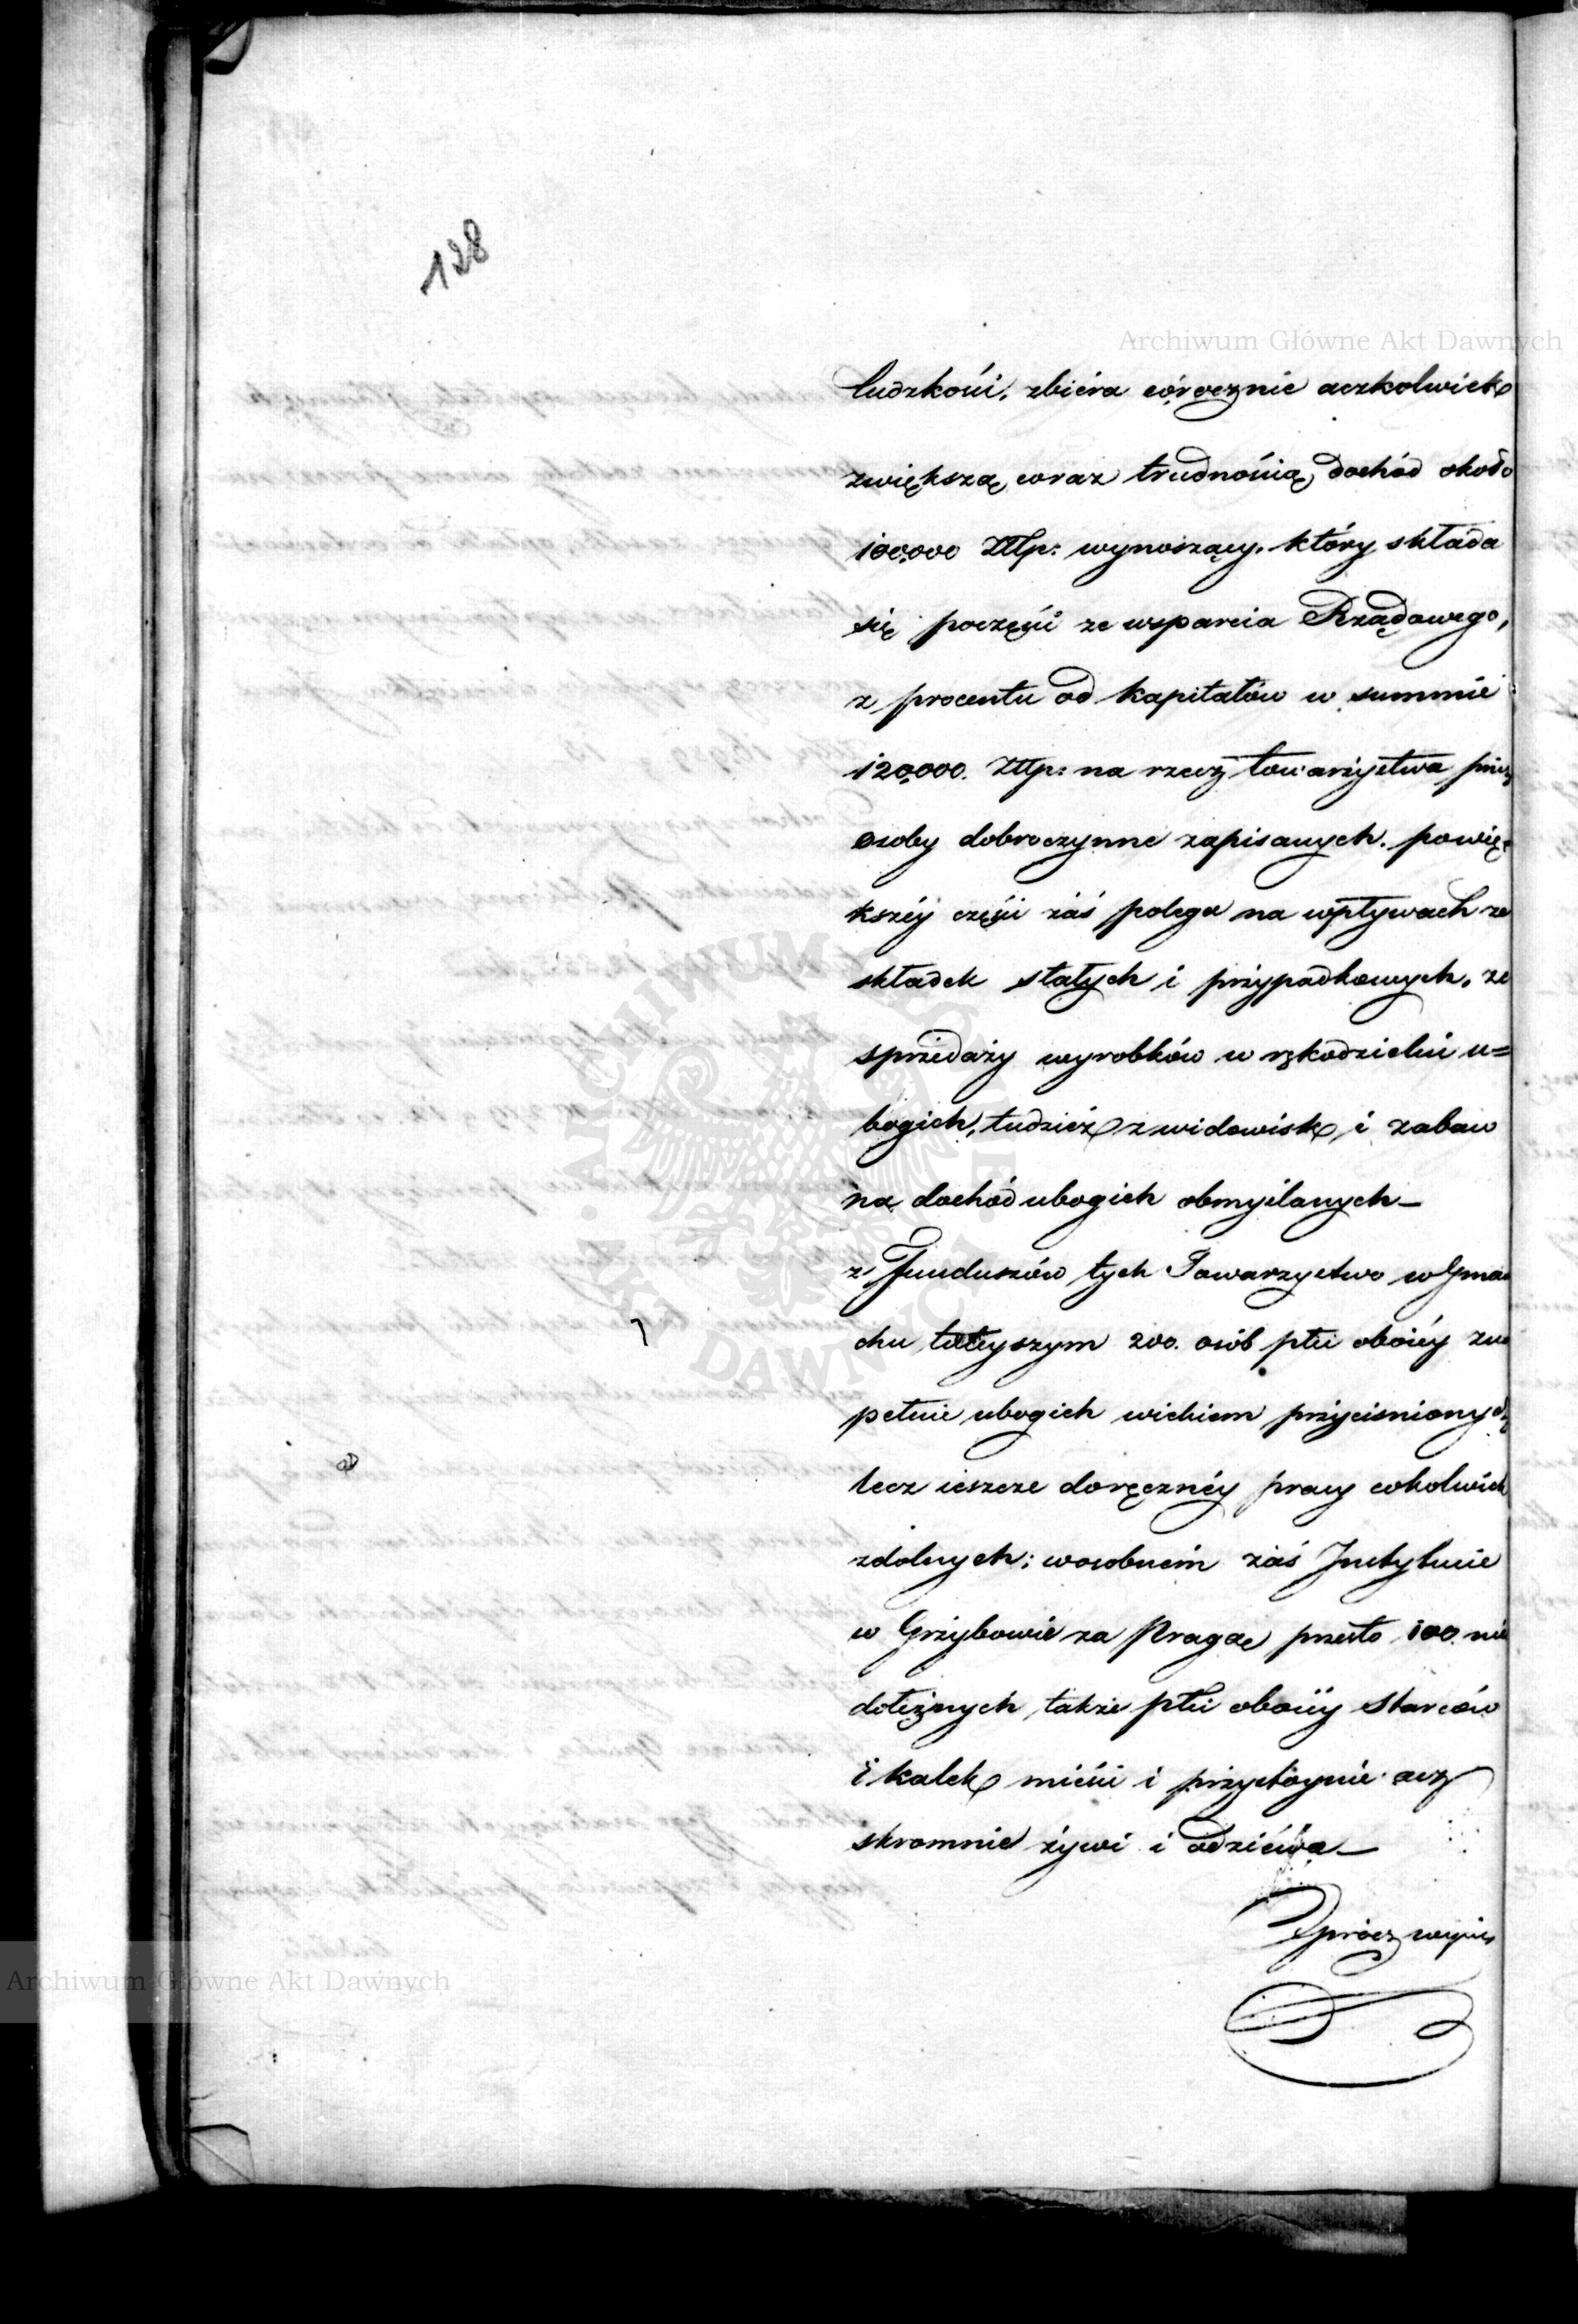 128
Archiwum Główne Akt Dawnych
ludzkości, zbiéra corocznie aczkolwiek
z większą coraz trudnością dochód około
100,000 Złlp: wynoszący, który składa
się poczęści ze wsparcia Rządowego,
z procentu od kapitałów w summie
120,000. Złlp: na rzecz towarzystwa przez
osoby dobroczynne zapisanych. powię-
kszéy części záś polega na wpływach ze
składek stałych i przypadkowych, ze
sprzedaży wyrobków w rękodzielni u=
bogich, tudzież z widowisk i zabaw
na dochód ubogich obmyślanych —
z Funduszów tych Towarzystwo w Gma
chu tuteyszym 200. osób płci oboiéy zu
pełnie ubogich wiekiem przyciśnionych
lecz ieszcze doręcznéy pracy cokolwiek
zdolnych; w osobném záś Instytucie
w Grzybowie za Pragą przeszło 100. nie
dołężnych także płci oboiéy starców
i kalek mieści i przystoynie acz
skromnie żywi i odziéwa —
Oprócz wyżéy
Archiwum Główne Akt Dawnych
ARCHIWUM GŁÓWNE AKT DAWNYCH